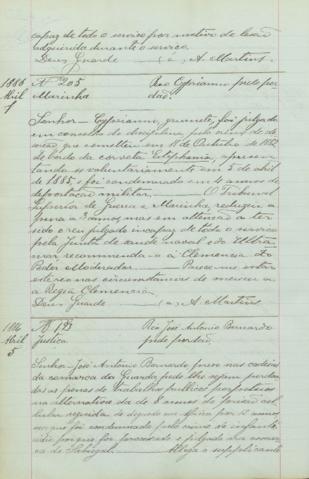 capaz de todo o serviço por motivo de lesão
adquirida durante o serviço
Deus Guarde (a) A. Martins
1886 Nº 205 Reo Cypriano pede per
Abril Marinha dão
7
Senhor — Cypriano, grumete, foi julgado
em conselho de disciplina pelo crime de de
serção que cometteu em 18 de Outubro de 1882
de bordo da corveta Estephania, apresen
tando se voluntariamente em 3 de abril
de 1885 e foi condemnado em annos de
deportação militar. O Tribunal
Superior de Guerra e Marinha, reduziu a
pena a 3 annos, mas em attenção a ter
sido o reu julgado incapaz de todo o serviço
pela junta de saude naval e do Ultra
mar recommenda-o á Clemencia do
Poder Moderador. Parece-me estar
este reu nas circumstancias de merecer a
a Regia Clemencia
Deus Guarde (a) A. Martins
1886 Nº 193 Reo José Antonio Bernardo
Abril Justiça pede perdão
5
Senhor José Antonio Bernardo preso nas cadeias
da comarca da Guarda pede lhe sejam perdoa
das as penas de trabalhos publicos perpetuos
na alternativa da de 8 annos de prisão cel
lular seguida de degredo em Africa por 12 annos
em que foi condemnado pelo crime de infanti
cidio porque foi processado e julgado na comar
ca do Sabugal. Allega o supplicante